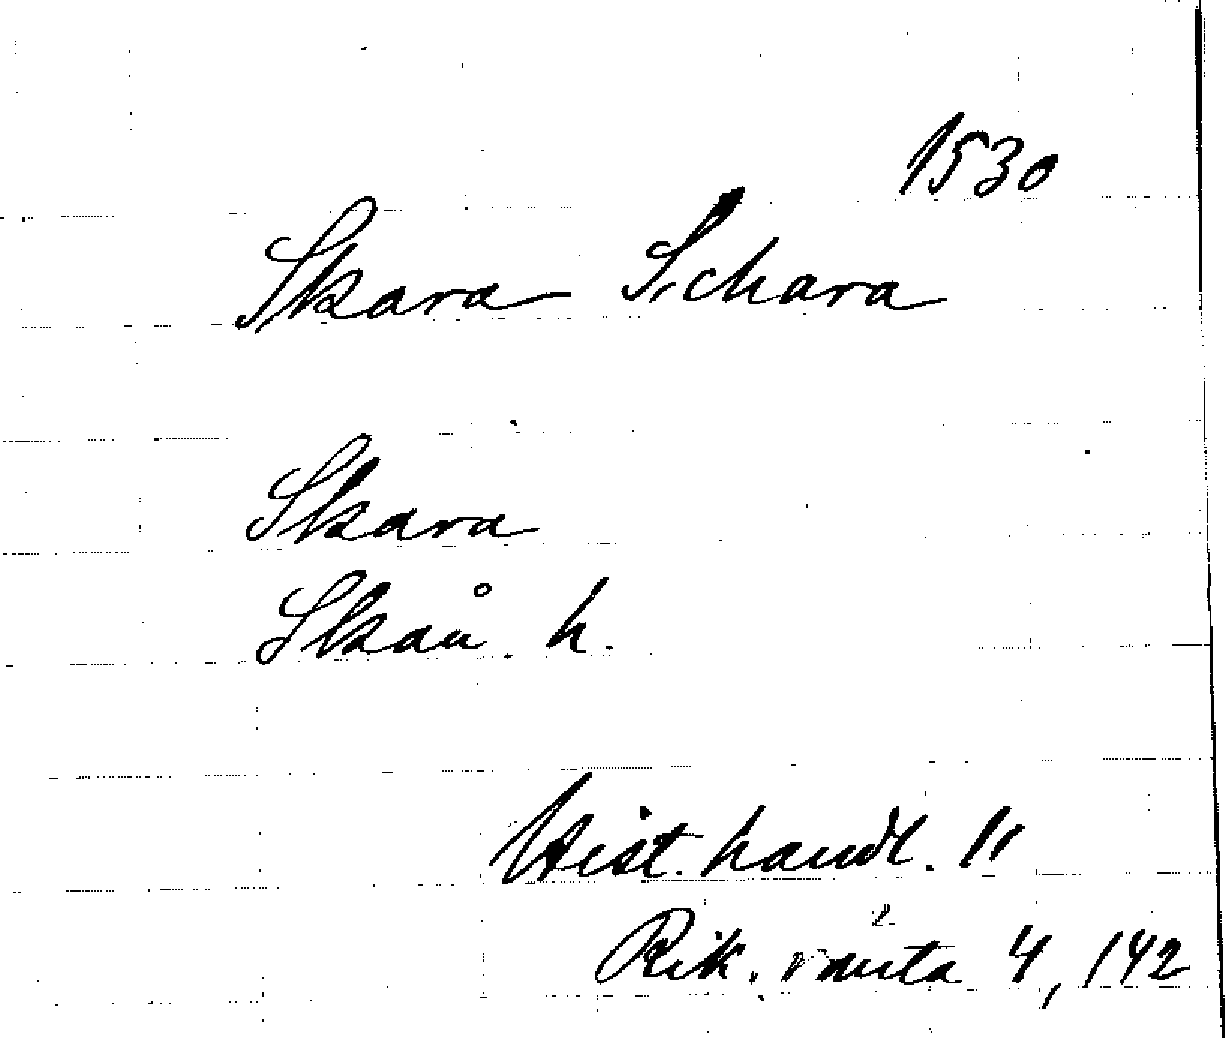 1530
Skara Schara
Skara
Skån. h.
Hist. handl. 11
2
Rik. ränta 4, 142